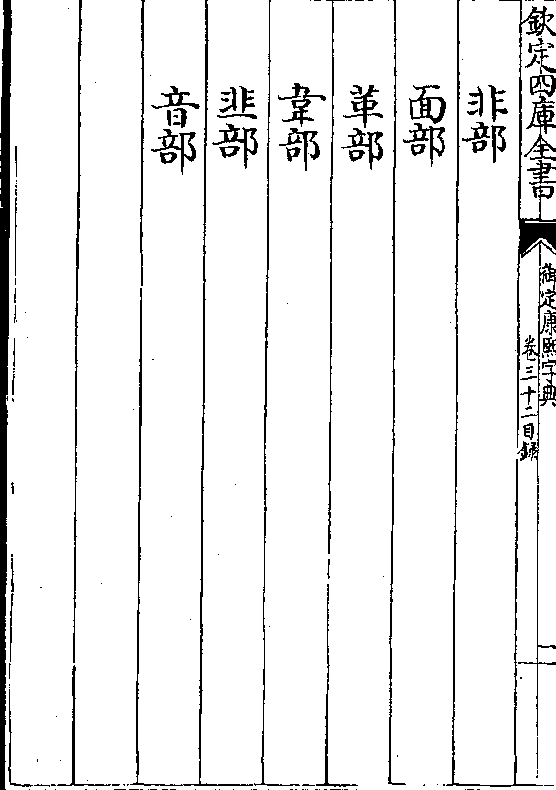 欽定四庫全書
御定康熙字典
卷三十二目錄
一
非部
面部
革部
韋部
韭部
音部